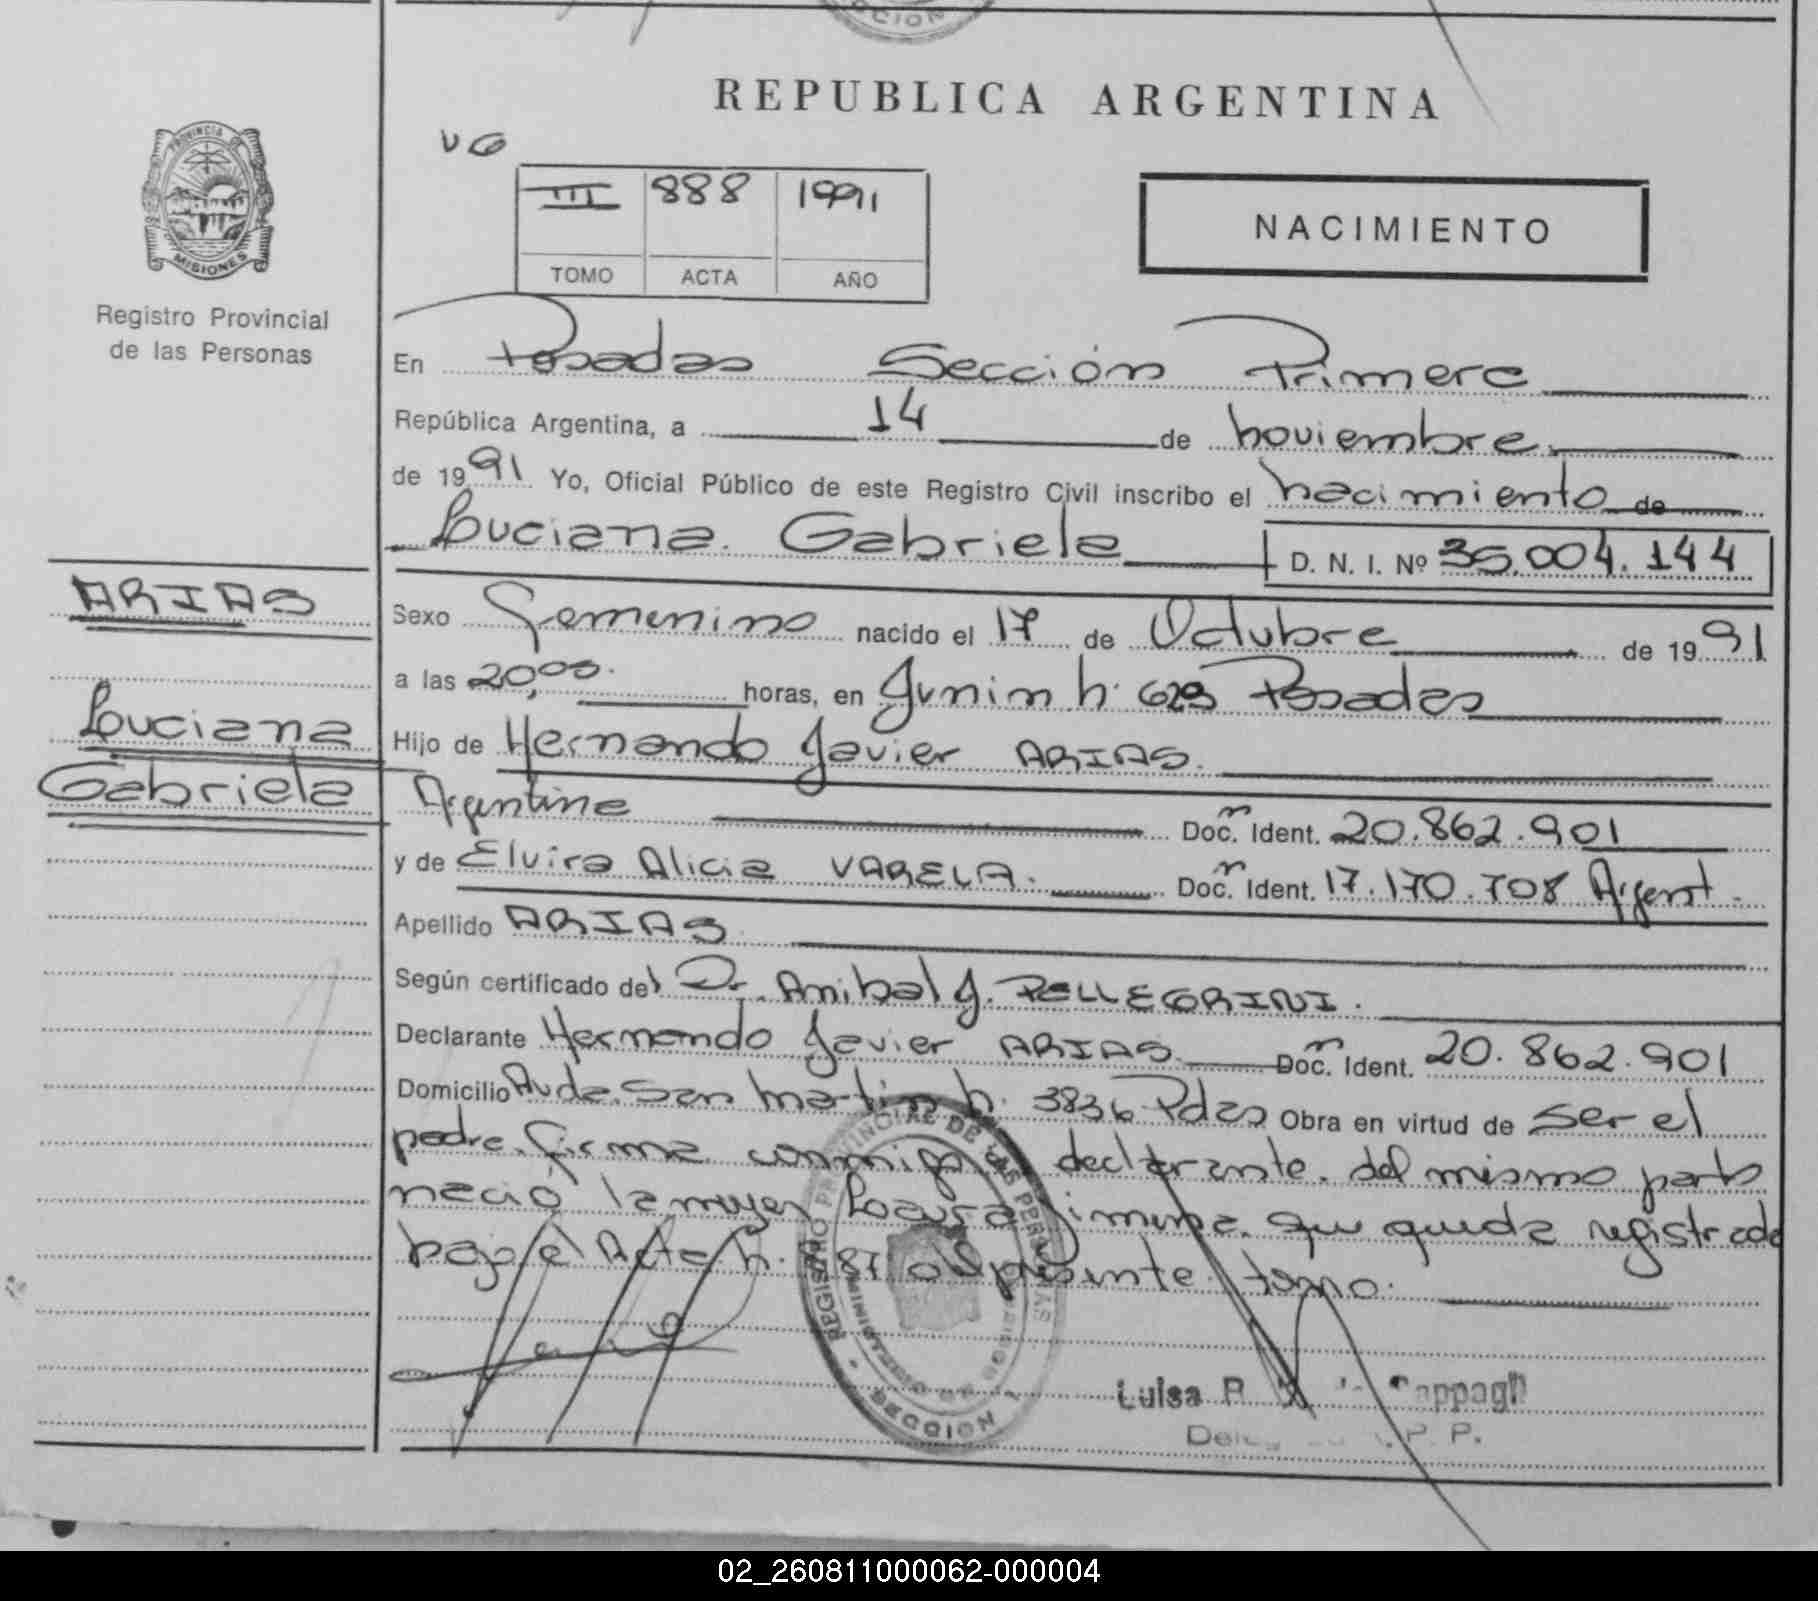 CCION
REPUBLICA ARGENTINA
VG
III 888 1991
TOMO ACTA AÑO
NACIMIENTO
PROVINCIA DE
MISIONES
Registro Provincial
de las Personas
En Posadas Sección Primera
República Argentina, a 14 de noviembre
de 1991 Yo, Oficial Público de este Registro Civil inscribo el nacimiento de
Luciana Gabriela D. N. I. Nº 36.004.144
ARIAS
Luciana
Gabriela
Sexo Femenino nacido el 17 de Octubre de 1991
a las 20,00. horas, en Junin n. 629 Posadas
Hijo de Hernando Javier ARIAS.
Argentina Doc. Ident. 20.862.901
y de Elvira Alicia VARELA. Doc. Ident. 17.170.708 Argent.
Apellido ARIAS
Según certificado del Dr. Anibal J. PELLEGRINI.
Declarante Hernando Javier ARIAS Doc. Ident. 20.862.901
Domicilio Avda. San Martin n. 3836 Pdas Obra en virtud de ser el
padre. firma conmigo declarante. del mismo parto
nació la mujer Jimena. que queda registrada
bajo el Acta n. 87 del presente tomo.
REGISTRO PROVINCIAL DE LAS PERSONAS
MINISTERIO DE
SECCION 1
Luisa R.
P. P.
02_260811000062-000004